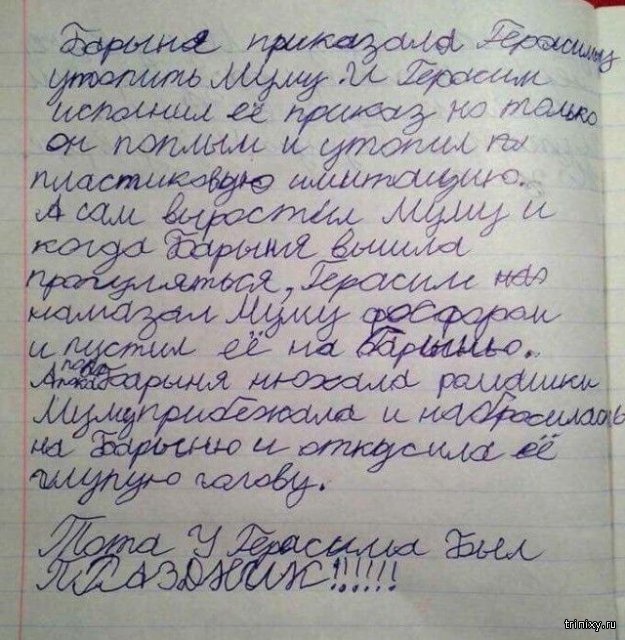 Барыня приказала Герасиму
утопить Муму. И Герасим
исполнил её приказ но только
он поплым и утопил
пластиковую имитацию.
А сам выростил Муму и
когда Барыня вышла
прагуляться, Герасим
намазал Муму фосфаром
и пустил её на Барыню.
А пока Барыня нюхала ромашки
Муму прибежала и набросилась
на Барыню и откусила её
глупую голову.
Тота У Герасима Был
ПРАЗДНИК!!!!!!
trinixy.ru